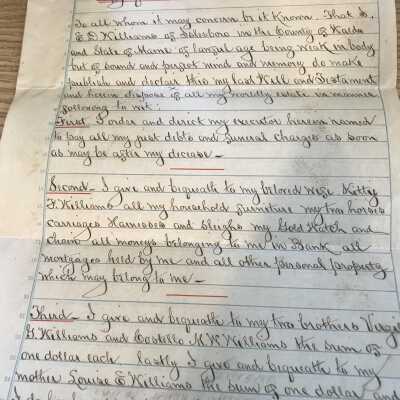 To all whom it may concern be it Known. That I,
E D Williams of Islesboro in the County of Waldo
and State of Maine of lawful age being weak in body
but of sound and perfect mind and memory do make
publish and declare this my last Will and Testament
and herein dispose of all my worldly estate in manner
following to wit:
First I order and direct my executor herein named
to pay all my just debts and funeral charges as soon
as may be after my decease –
Second – I give and bequath to my beloved wife Kittey
F. Williams all my household furniture my two horses
carriages Harnesses and sleighs my Gold Watch and
chain all moneys belonging to me in Bank all
mortgages held by me and all other personal property
which may belong to me –
Third – I give and bequath to my two brothers Virgil
G. Williams and Costello N. W. Williams the sum of
one dollar each. lastly I give and bequath to my
mother Louise E Williams the sum of one dollar and